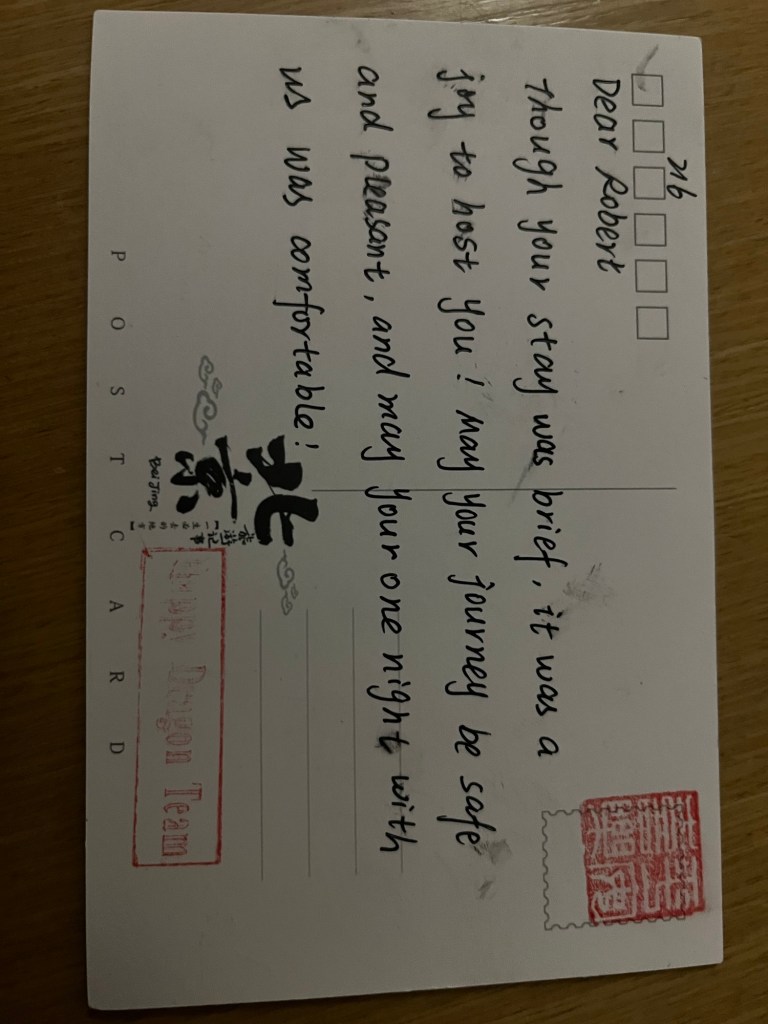 216
Dear Robert
Though your stay was brief, it was a
joy to host you! May your journey be safe
and pleasant, and may your one night with
us was comfortable!
北京
BeiJing
游记
Dragon Team
POSTCARD